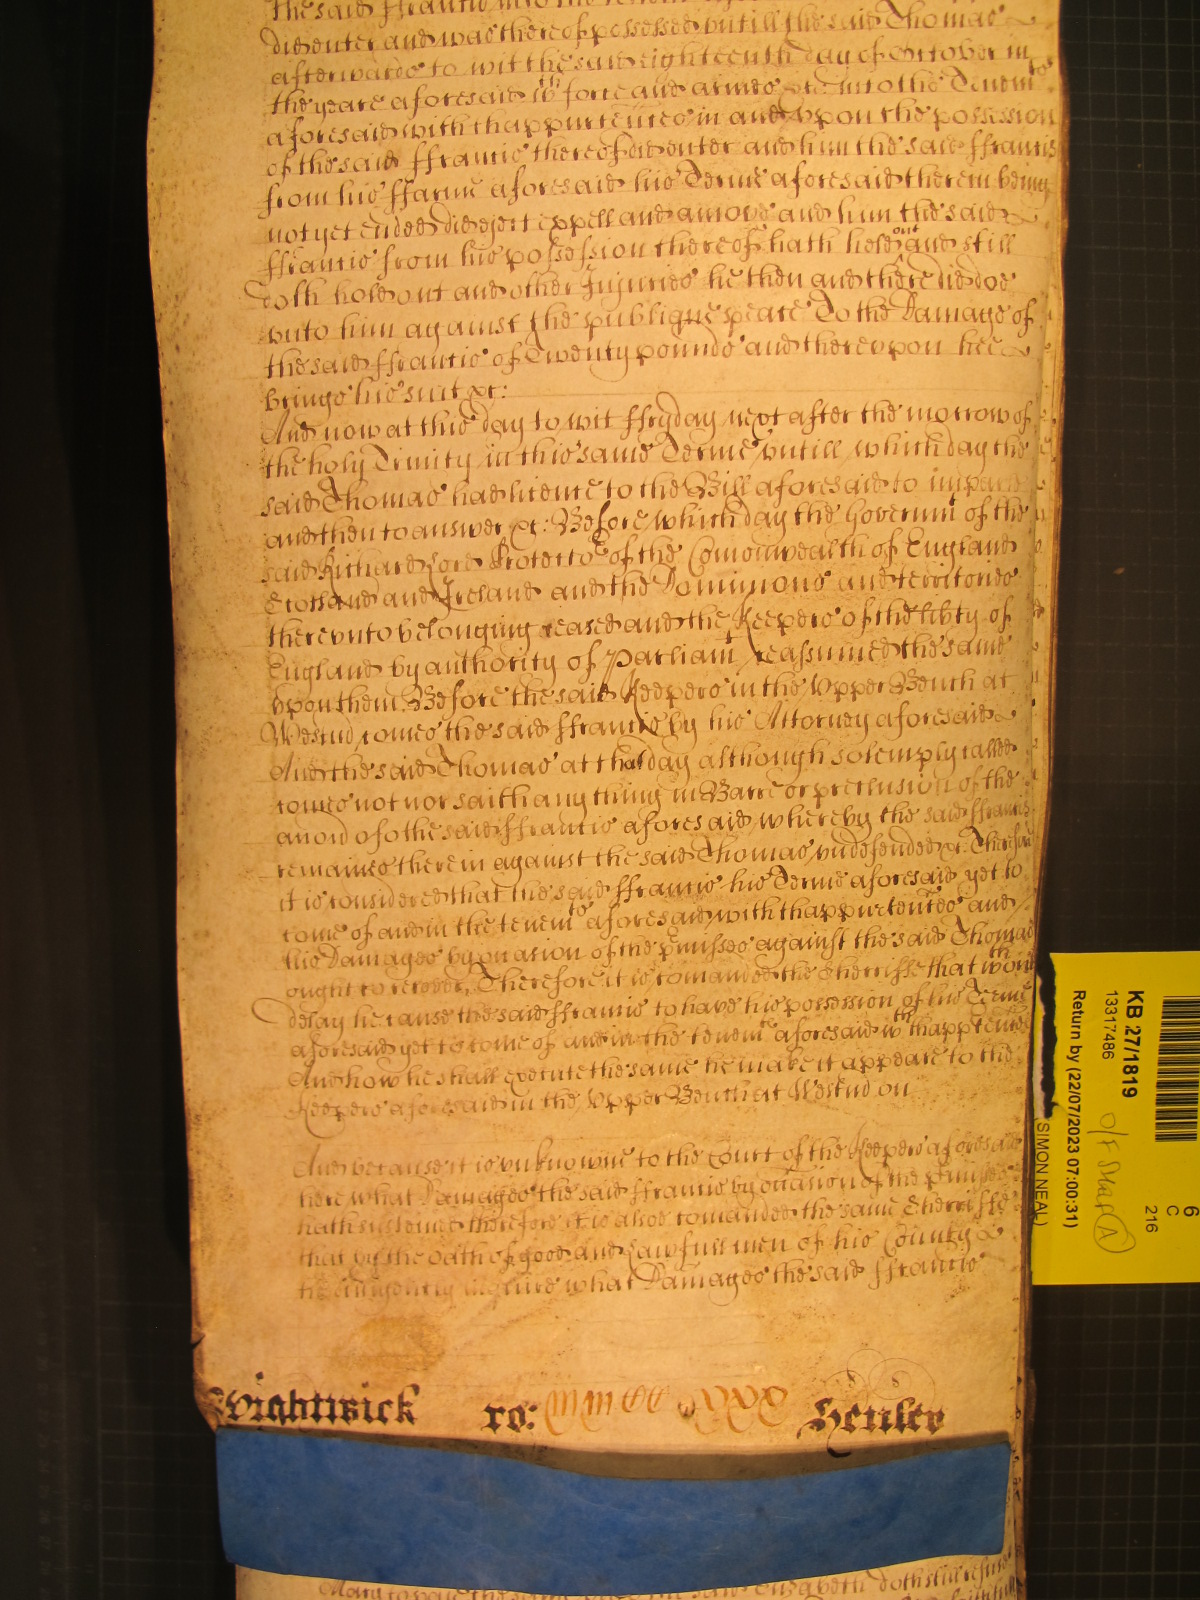 the said Francis into the
did enter and was thereof possessed untill the said Thomas
afterwards to wit the said eighteenth day of October in
the yeare aforesaid wth force and armes &c into the Tenemts
aforesaid with thappurtences in and upon the possession
of the said ffrancis thereof did enter and him the said ffrancis
from his ffarme aforesaid his Terme aforesaid therein being
not yet ended did eject expell and amove and him the said
ffrancis from his possession thereof hath held out and still
doth hold out and other Injuries he then and there did doe
unto him against the publique peace To the Damage of
the said ffrancis of Twenty pounds and thereupon hee
brings his suit &c:
And now at this day to wit ffryday next after the morrow of
the holy Trinity in this same Terme untill which day the
said Thomas had licence to the Bill aforesaid to imparle
and then to answer &c: Before which day the Governmt of the
said Richard Lord Protector of the Comonwealth of England
Scotland and Ireland and the Dominions and territories
thereunto belonging ceased and the Keepers of the libty of
England by authority of Parliamt reassumed the same
upon them Before the said Keepers in the Upper Bench at
Westmd comes the said ffrancis by his Attorney aforesaid
And the said Thomas at that day although solemply called
comes not nor saith any thing in Barre or preclusion of the
accon of the said ffrancis aforesaid whereby the said ffrancis
remaines therein against the said Thomas undefended &c: Therefore
it is considered that the said ffrancis his Terme aforesaid yet to
come of and in the tenemts aforesaid with thappurtences and
his Damages by occasion of the premisses against the said Thomas
ought to recover, Therefore it is comanded the Sherriffe that wthout
delay he cause the said ffrancis to have his possession of his Terme
aforesaid yet to come of and in the tenemts aforesaid wth thappurtences
And how he shall execute the same he make it appeare to the
Keepers aforesaid in the Upper Bench at Westmd on
And because it is unknowne to the Court of the Keepers aforesaid
here what Damages the said ffrancis by occasion of the premisses
hath susteined therefore it is alsoe comanded the same Sherriffe
that by the oath of good and Lawfull men of his County
he diligently inquire what Damages the said ffrancis
Wightwick ro: Henley
Mary to pay the same Elizabeth doth still refuse
KB 27/1819
13317486
Return by (22/07/2023 07:00:31)
SIMON NEAL)
O/F Shelf A
6
C
216